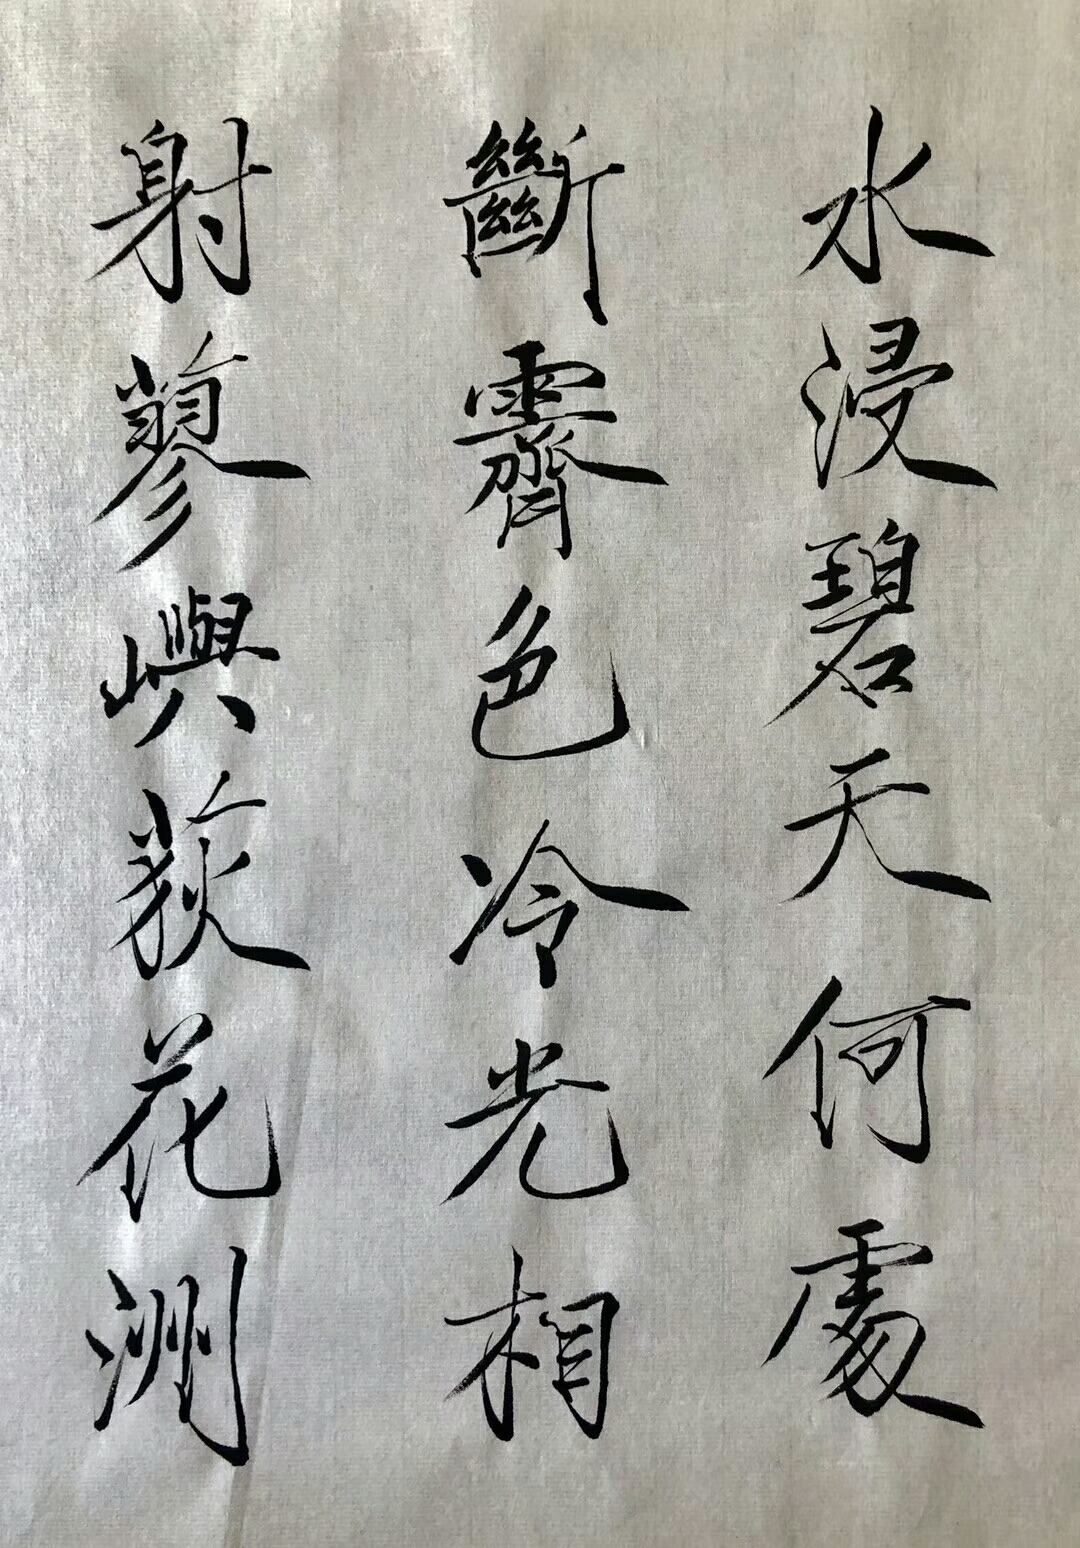 水浸碧天何處
斷霽色冷光相
射蓼嶼荻花洲